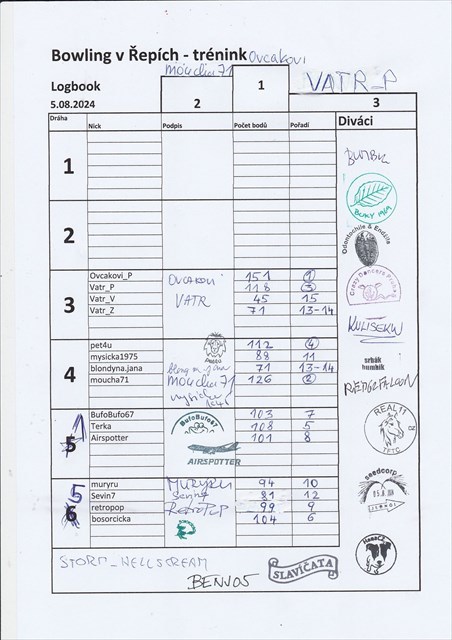 Bowling v Řepích - trénink Ovcakovi
moucha71
Logbook 1 VATR_P
5.08.2024 2 3
Dráha Nick Podpis Počet bodů Pořadí Diváci
1
BUKY 1919
2
Odontochile & Endzila
Crazy Dancers Praha
3
Ovcakovi_P OVCAKOVI 151 1
Vatr_P VATR 118 3
Vatr_V 45 15
Vatr_Z 71 13-14
KULISEKW
4
pet4u 112 4
mysicka1975 88 11
blondyna.jana 71 13-14
moucha71 moucha71 126 2
srbák
humñik
5 1
BufoBufo67 BufoBufo67 103 7
Terka 108 5
Airspotter AIRSPOTTER 101 8
REAL11
CZ
TFTC
6 5
muryru MURYRU 94 10
Sevin7 81 12
retropop RETROPOP 99 9
bosorcicka 104 6
seedcorp
STORM_HELLSCREAM
BENJ05
SLAVÍČATA